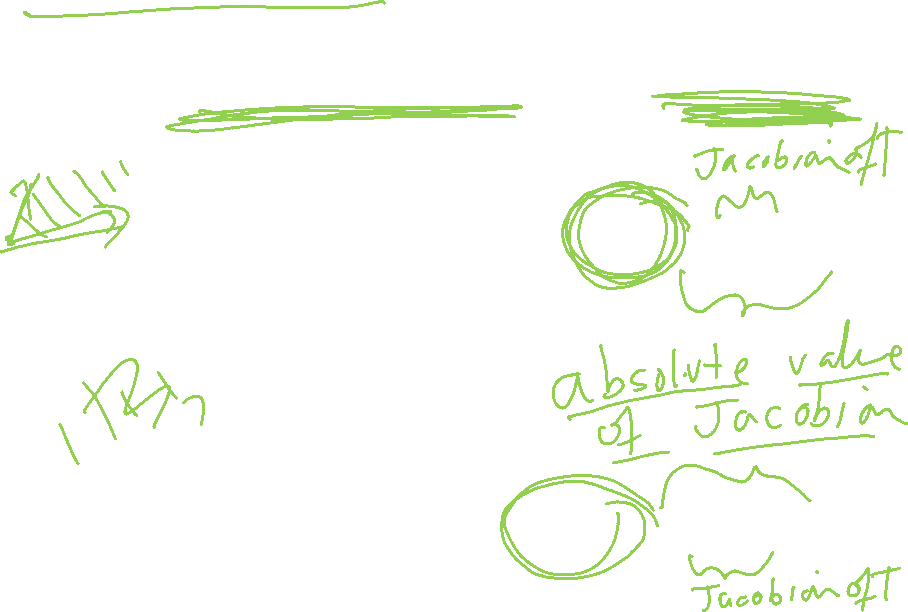 Jacobian of T
absolute value
of Jacobian
Jacobian of T